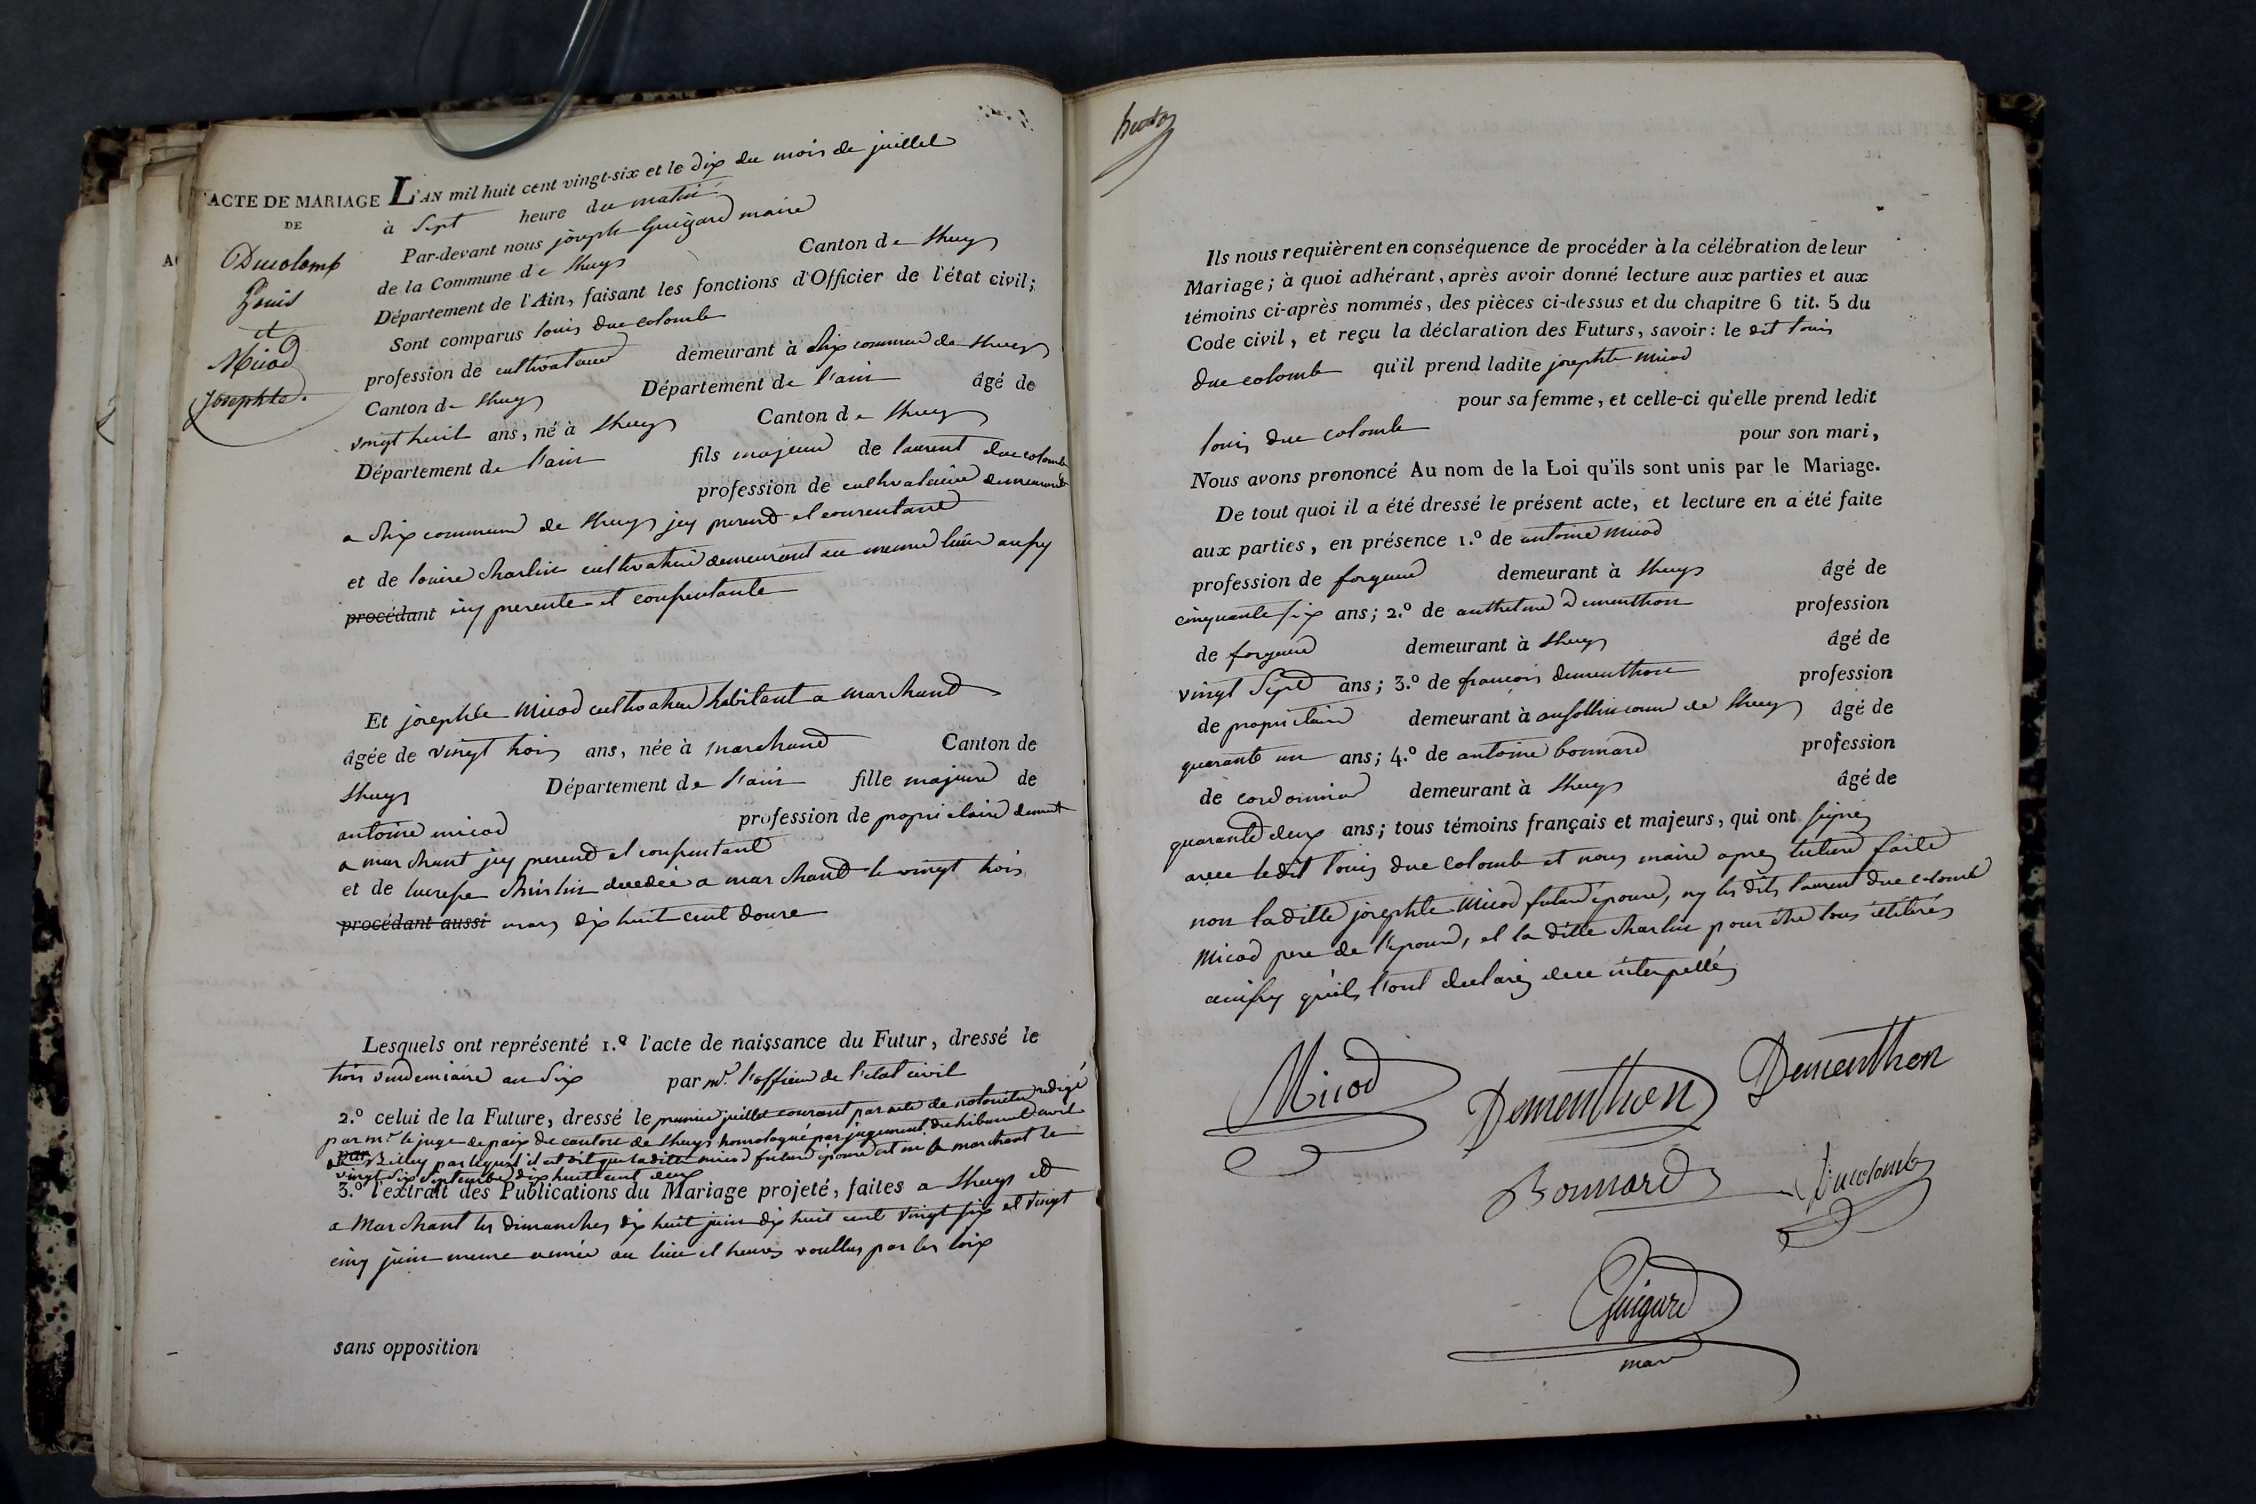 ACTE DE MARIAGE
DE
Ducolomb
Louis
et
Micod
Josephte.
L'AN mil huit cent vingt-six et le dix du mois de juillet
à Sept heure du matin
Par-devant nous joseph Guigard maire
de la Commune de Lhuys Canton de Lhuys
Département de l'Ain, faisant les fonctions d'Officier de l'état civil;
Sont comparus louis duc colomb
profession de cultivateur demeurant à commune de Lhuys
Canton de Lhuys Département de l'ain âgé de
vingt huit ans, né à Lhuys Canton de Lhuys
Département de l'ain fils majeur de laurent duc colomb
profession de cultivateur demeurant
a commune de Lhuys icy present et consentant
et de louise charlin cultivatrice demeurant au meme lieu aussy
procédant icy presente et consentante
Et josephte Micod cultivatrice habitant a marchand
âgée de vingt trois ans, née à marchand Canton de
Lhuys Département de l'ain fille majeure de
antoine micod profession de proprietaire demeut
a marchant icy present et consentant
et de lucresse decedée a marchand le vingt trois
procédant aussi mars dix huit cent douze
Lesquels ont représenté 1.º l'acte de naissance du Futur, dressé le
trois vendemiaire an Six par mr. l'officier de l'etat civil
2.º celui de la Future, dressé le premier juillet courant par acte de notorieté redigé
par mr. le juge de paix du canton de Lhuys homologué par jugement du tribunal civil
de Belley par lequel il est dit que laditte micod future epouse est née a marchant le
vingt six Septembre dix huit cent deux
3.º l'extrait des Publications du Mariage projeté, faites a Lhuys et
a Marchant les dimanches dix huit juin dix huit cent vingt six et vingt
cinq juin meme année au lieu et heures voullus par les loix
sans opposition
Ils nous requièrent en conséquence de procéder à la célébration de leur
Mariage; à quoi adhérant, après avoir donné lecture aux parties et aux
témoins ci-après nommés, des pièces ci-dessus et du chapitre 6 tit. 5 du
Code civil, et reçu la déclaration des Futurs, savoir: le dit louis
duc colomb qu'il prend ladite josephte micod
pour sa femme, et celle-ci qu'elle prend ledit
louis duc colomb pour son mari,
Nous avons prononcé Au nom de la Loi qu'ils sont unis par le Mariage.
De tout quoi il a été dressé le présent acte, et lecture en a été faite
aux parties, en présence 1.º de antoine micod
profession de forgeur demeurant à Lhuys âgé de
cinquante six ans; 2.º de anthelme Dementhon profession
de forgeur demeurant à Lhuys âgé de
vingt Sept ans; 3.º de francois dementhon profession
de proprietaire demeurant à comm de Lhuys âgé de
quarante un ans; 4.º de antoine bonnard profession
de cordonnier demeurant à Lhuys âgé de
quarante deux ans; tous témoins français et majeurs, qui ont signé
avec ledit louis duc colomb et nous maire apres lecture faite
non laditte josephte Micod future epouse, ny les dits laurent duc colomb
Micod pere de l'epouse, et la ditte charlin pour etre tous illiterés
ainsy qu'ils l'ont declaré interpellés
Micod
Dementhon
Dementhon
Bonnard
Ducolomb
Guigard
maire